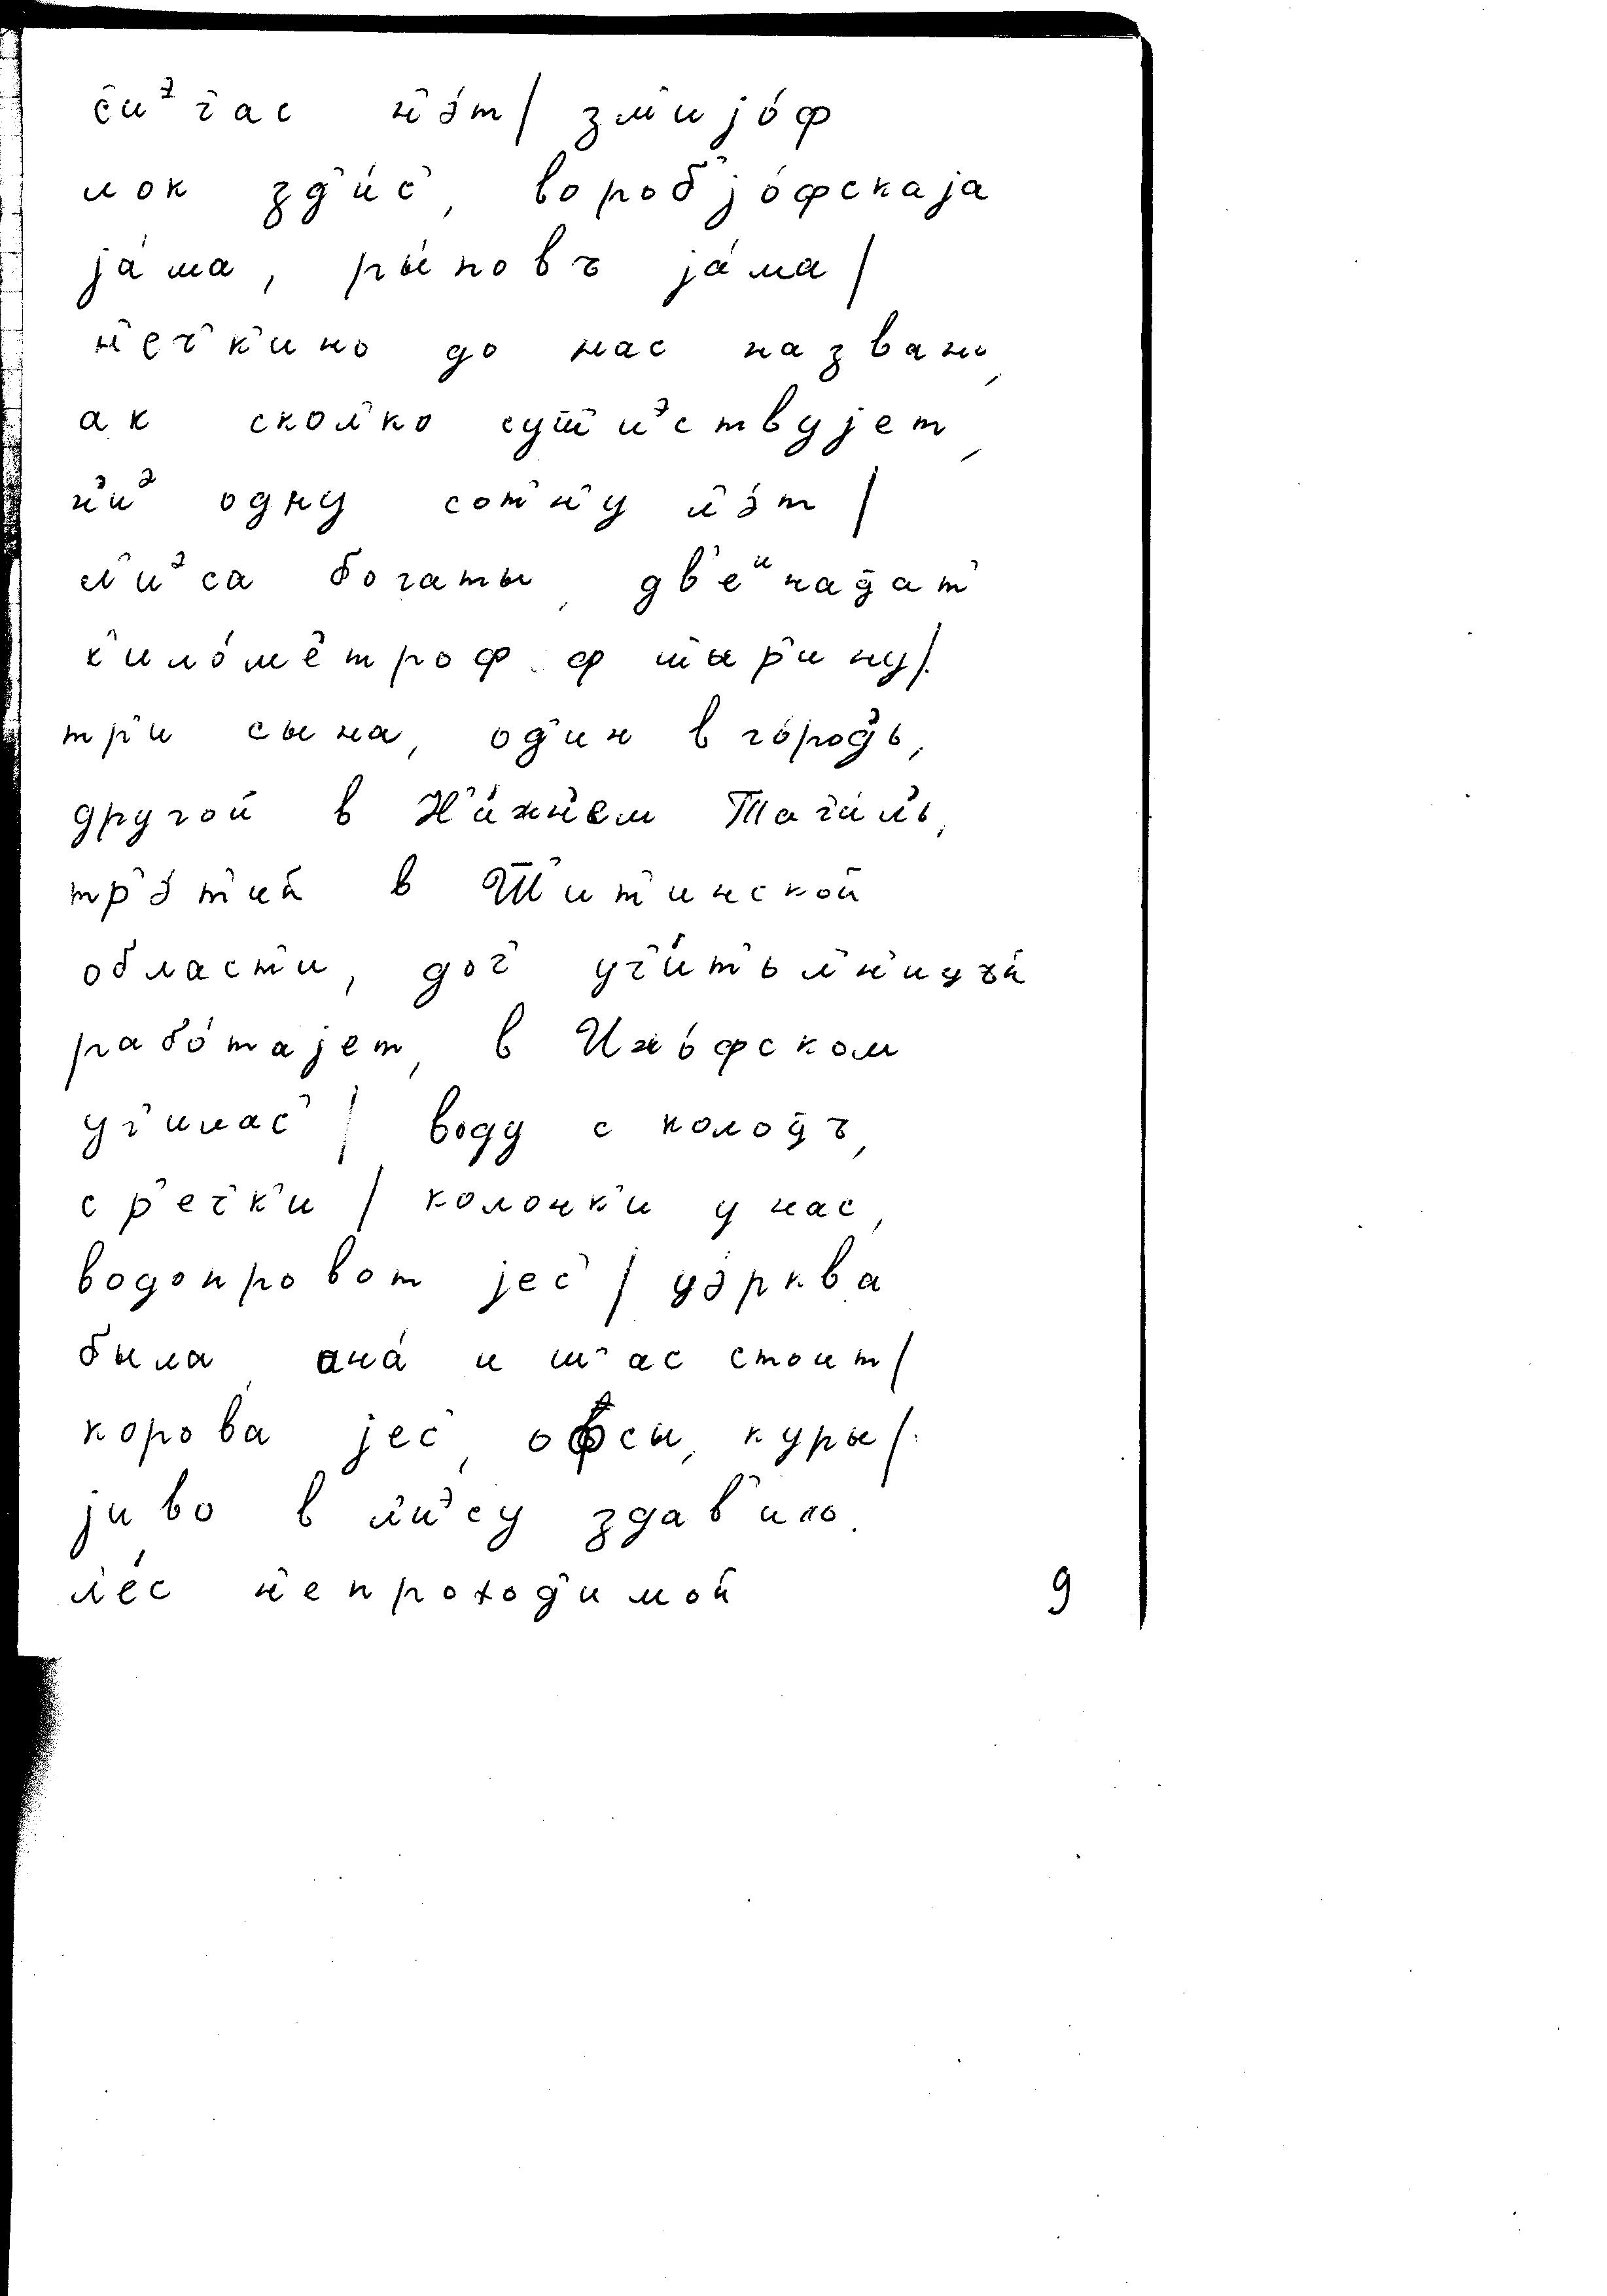 с̑иᶟч̑ас н̑э́т/ змийо́ф
лок зд̑и́с̑, вороб̑jо́фскаjа
jа́ма, ры́повъ jа́ма/
н̑еч̑к̑ино до нас назвали,
ак скол̑ко суш̑иᶟствуjет,
н̑иᶟ одну сот̑н̑у л̑э́т/
л̑иᶟса богаты, дв̑еᶸнац̑ат̑
к̑ило́м̑етроф ф шыр̑ину/.
тр̑и сына, од̑ин в го́род̑ь,
другой в Н̑и́жн̑ем Таг̑и́л̑ь,
тр̑э́т̑ий в Ш̑ит̑инской
област̑и, доч̑ уч̑и́т̑ьл̑н̑ицъй
рабо́таjет, в Иж́ьфском
уч̑илас̑/ воду с колоцъ,
с р̑еч̑к̑и/ колонк̑и у нас,
водопровот jес̑/ цэ́рква
была, она́ и ш̑ас стоит/
корова jес̑, офсы, куры/.
jиво в л̑иᶟсу здав̑ило.
л̑е́с н̑епроход̑имой
9